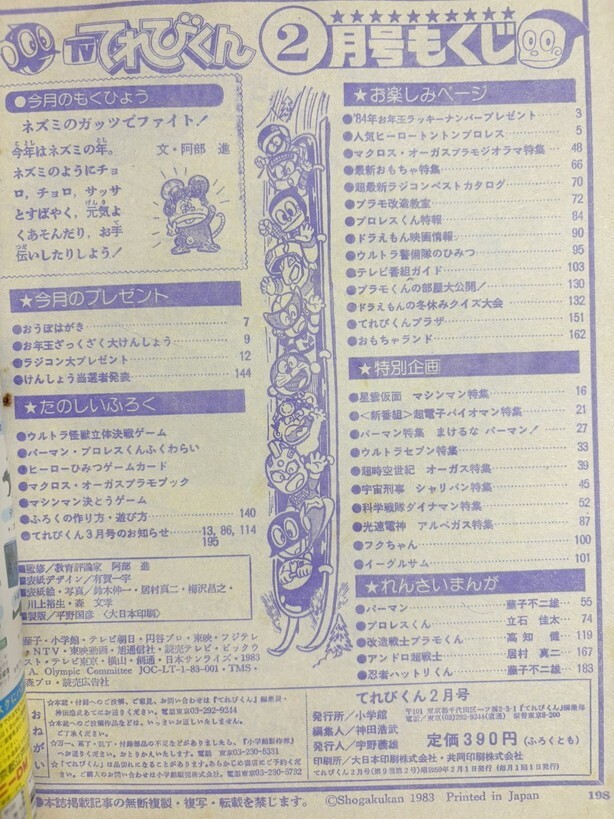 TVてれびくん ②月号もくじ
●今月のもくひょう
ネズミのガッツでファイト!
文・阿部 進
今年はネズミの年。
ネズミのようにチョ
ロ,チョロ,サッサ
とすばやく,元気よ
くあそんだり,お手
伝いしたりしよう!
★今月のプレゼント
●おうぼはがき 7
●お年玉ざっくざく大けんしょう 9
●ラジコン大プレゼント 12
●けんしょう当選者発表 144
★たのしいふろく
●ウルトラ怪獣立体決戦ゲーム
●パーマン・プロレスくんふくわらい
●ヒーローひみつゲームカード
●マクロス・オーガスプラモブック
●マシンマン決とうゲーム
●ふろくの作り方・遊び方 140
●てれびくん3月号のお知らせ 13, 86, 114
195
■監修/教育評論家 阿部 進
■表紙デザイン/有賀一宇
■表紙絵・写真/鈴木伸一・居村真二・梅沢昌之・
川上裕生・森 文孝
■製版/平野国彦〈大日本印刷〉
藤子・小学館・テレビ朝日・円谷プロ・東映・フジテレ
・NTV・東映動画・旭通信社・読売テレビ・ビックウ
スト・テレビ東京・横山・創通・日本サンライズ・1983
A. Olympic Committee JOC-LT-1-83-001・TMS・
森プロ・読売広告社
★お楽しみページ
●'84年お年玉ラッキーナンバープレゼント 3
●人気ヒーロートントンプロレス 5
●マクロス・オーガスプラモジオラマ特集 48
●最新おもちゃ特集 66
●超最新ラジコンベストカタログ 70
●プラモ改造教室 72
●プロレスくん特報 84
●ドラえもん映画情報 90
●ウルトラ警備隊のひみつ 95
●テレビ番組ガイド 103
●プラモくんの部屋大公開! 130
●ドラえもんの冬休みクイズ大会 132
●てれびくんプラザ 151
●おもちゃランド 162
★特別企画
●星雲仮面 マシンマン特集 16
●<新番組>超電子バイオマン特集 21
●パーマン特集 まけるな パーマン! 27
●ウルトラセブン特集 33
●超時空世紀 オーガス特集 39
●宇宙刑事 シャリバン特集 45
●科学戦隊ダイナマン特集 52
●光速電神 アルベガス特集 87
●フクちゃん 100
●イーグルサム 101
★れんさいまんが
●パーマン 藤子不二雄 55
●プロレスくん 立石 佳太 74
●改造戦士プラモくん 高知 健 119
●アンドロ超戦士 居村 真二 167
●忍者ハットリくん 藤子不二雄 183
おねがい
★本誌・付録へのご投稿、ご意見、お問い合わせは『てれびくん』編集部・
神田浩武あてにお送りください。電話東京03-292-9344
★本誌へのご投稿作品などは、いっさいお返しいたしません。
ご了承ください。
☆万一、落丁・乱丁・付録部品の不足などがありましたら、『小学館制作部』
へお送りください。おとりかえいたします。電話 東京 03-230-5331
☆『てれびくん』は品切れになることがあります。あらかじめ書店にご予約くだ
さい。ご購入のお問い合わせは小学館販売部に。電話東京03-230-5732
てれびくん2月号
発行所/小学館
〒101 東京都千代田区一ツ橋2-3-1『てれびくん』編集部
電話/東京(03)292-9344(直通) 振替東京8-200
編集人/神田浩武
発行人/宇野義雄
定価390円(ふろくとも)
印刷所/大日本印刷株式会社・共同印刷株式会社
てれびくん2月号(第9巻第2号)昭和59年2月1日発行(毎月1回1日発行)
●本誌掲載記事の無断複製・複写・転載を禁じます。 ©Shogakukan 1983 Printed in Japan 198